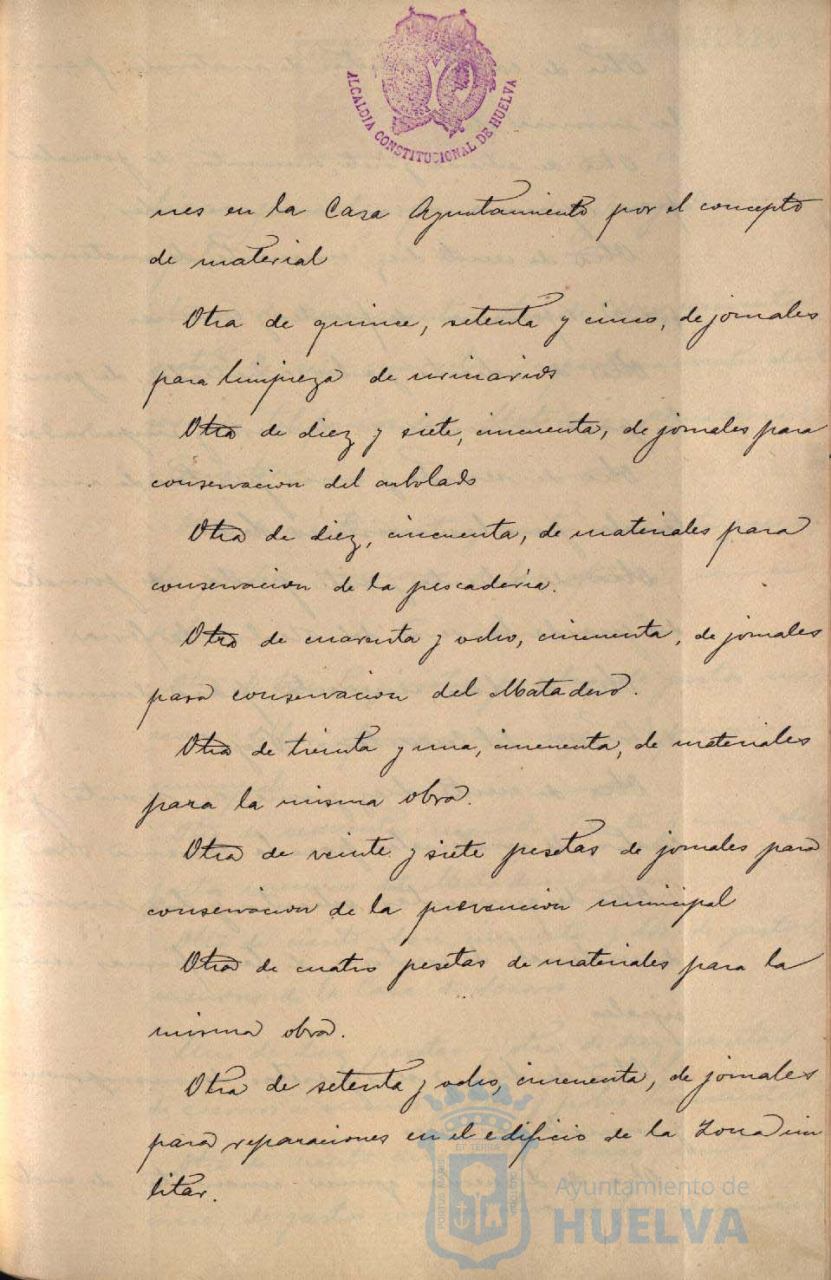 ALCALDIA CONSTITUCIONAL DE HUELVA
nes en la Casa Ayuntamiento por el concepto
de material
Otra de quince, setenta y cinco, de jornales
para limpieza de urinarios
Otra de diez y siete, cincuenta, de jornales para
conservacion del arbolado
Otra de diez, cincuenta, de materiales para
conservacion de la pescaderia.
Otra de cuarenta y ocho, cincuenta, de jornales
para conservacion del Matadero.
Otra de treinta y una, cincuenta, de materiales
para la misma obra.
Otra de veinte y siete pesetas de jornales para
conservacion de la prevencion municipal
Otra de cuatro pesetas de materiales para la
misma obra.
Otra de setenta y ocho, cincuenta, de jornales
para reparaciones en el edificio de la Zona mi
litar.
Ayuntamiento de
HUELVA